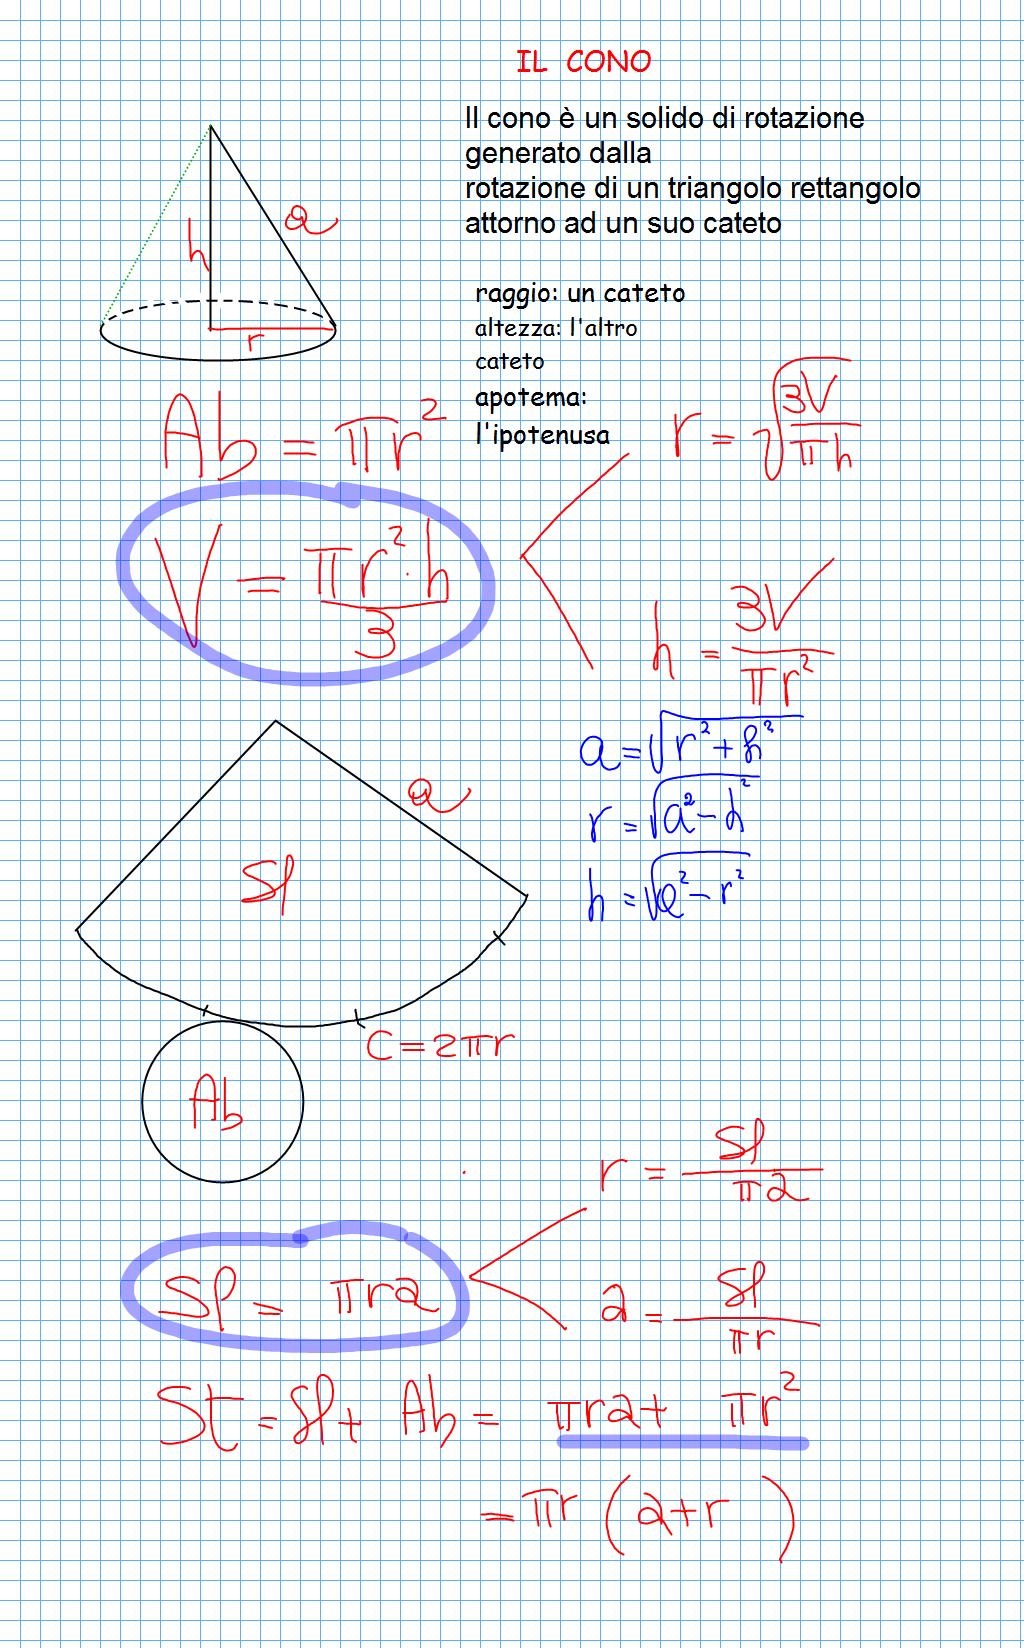 IL CONO
Il cono è un solido di rotazione
generato dalla
rotazione di un triangolo rettangolo
attorno ad un suo cateto
a
h
r
raggio: un cateto
altezza: l'altro
cateto
apotema:
l'ipotenusa
Ab = πr²
r = √(3V/πh)
V = πr²·h/3
h = 3V/πr²
a = √(r²+h²)
r = √(a²-h²)
h = √(a²-r²)
a
Sl
C = 2πr
Ab
r = Sl/πa
Sl = πra
a = Sl/πr
St = Sl + Ab = πra + πr²
= πr (a+r)